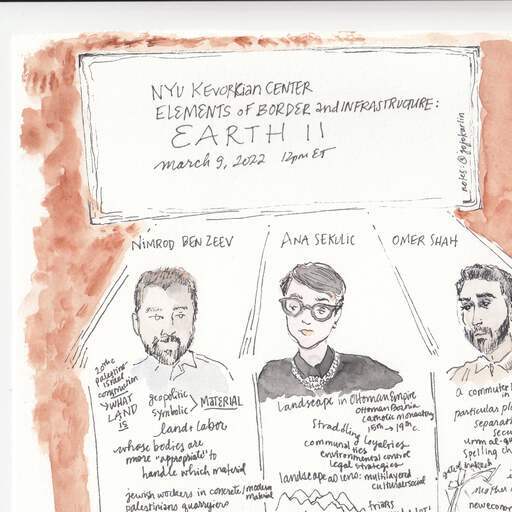 NYU Kevorkian CENTER
ELEMENTS of BORDER and INFRASTRUCTURE:
EARTH II
march 9, 2022 12pm ET
notes: @jojokarlin
NIMROD BEN ZEEV
ANA SEKULIC
OMER SHAH
20thc
palestine
israel
construction
WHAT
LAND
IS
geopolitic
symbolic > MATERIAL
land + labor
whose bodies are
more "appropriate" to
handle which material
jewish workers in concrete/modern
material
palestinians quarryiers
Landscape in Ottoman Empire
Ottoman Bosnia
catholic monastery
15th → 19thc
Straddling loyalties
communal ties
environmental control
legal strategies
landscape as lens: multilayered
cultural social
friars
a commuter
in
particular pl
separat
secu
umm al-qu
spelling ch
mother
new econom